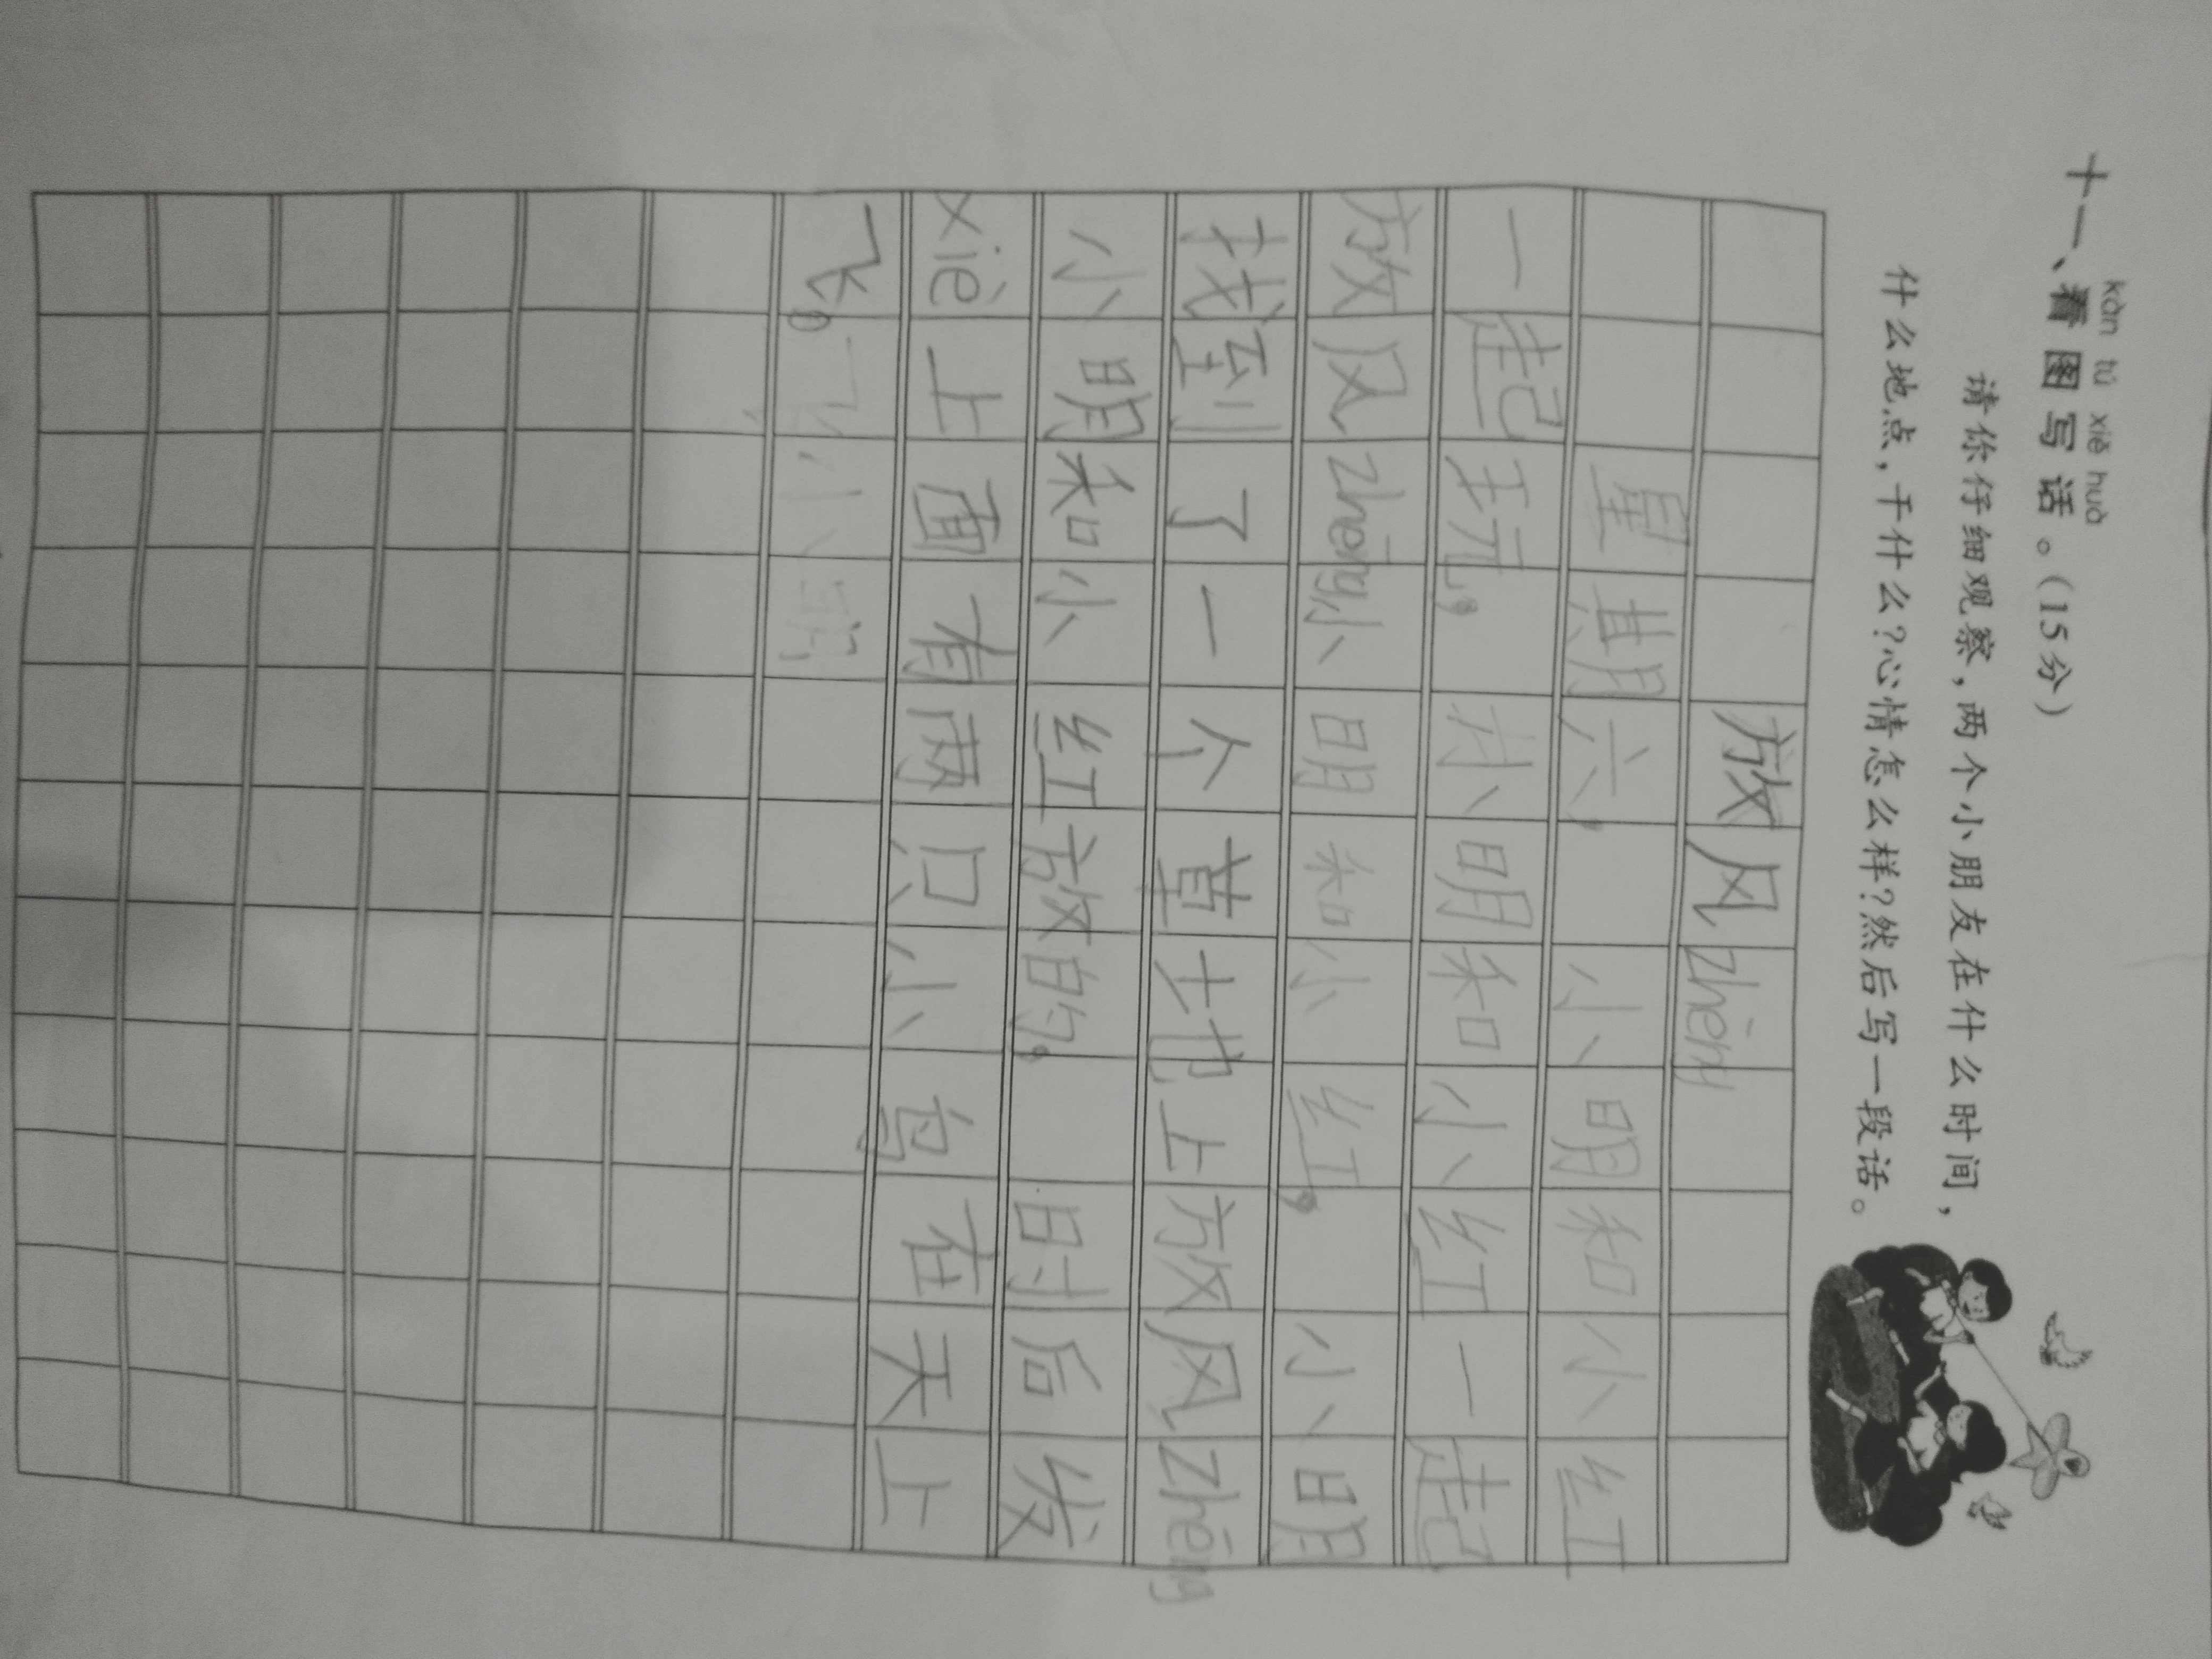 kàn tú xiě huà
十一、看图写话。(15分)
请你仔细观察，两个小朋友在什么时间，
什么地点，干什么？心情怎么样？然后写一段话。
放风zhēng
星期六，小明和小红
一起玩，才小明和小红一起
放风zhēng小明和小红，小明
找到了一个草地上放风zhēng
小明和小红放的，时后发
xiè上面有两只小鸟在天上
飞。